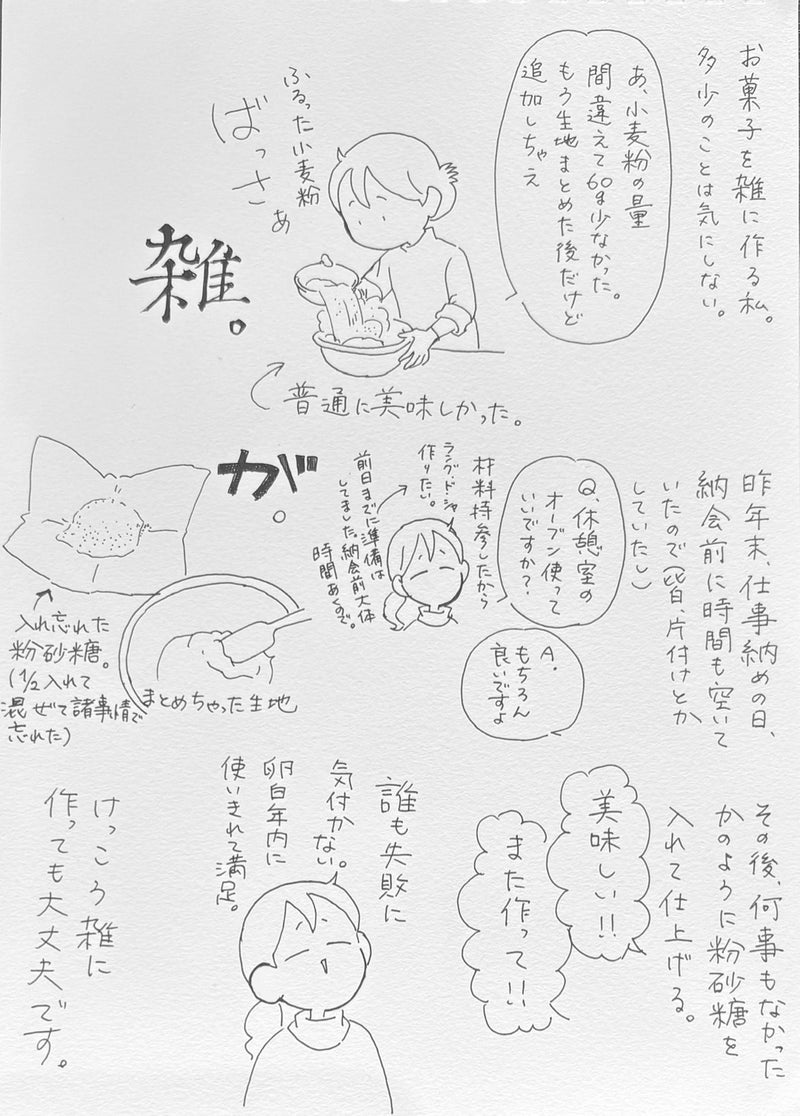 お菓子を雑に作る私。
多少のことは気にしない。
あ、小麦粉の量
間違えて60g少なかった。
もう生地まとめた後だけど
追加しちゃえ
ふるった小麦粉
ばっさぁ
雑。
普通に美味しかった。
昨年末、仕事納めの日、
納会前に時間も空いて
いたので(皆、片付けとか
していたし)
Q.休憩室の
オーブン使って
いいですか?
A.
もちろん
良いですよ
材料持参したから
ラング・ド・シャ
作りたい。
前日までに準備は
してました。納会前大体
時間あくので。
が。
入れ忘れた
粉砂糖。
(1/2入れて
混ぜて諸事情で
忘れた)
まとめちゃった生地
その後、何事もなかった
かのように粉砂糖を
入れて仕上げる。
美味しい!!
また作って!!
誰も失敗に
気付かない。
卵白年内に
使いきれて満足。
けっこう雑に
作っても大丈夫です。